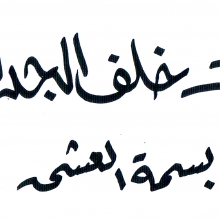 ت خلف الجدا
بسمة العشى